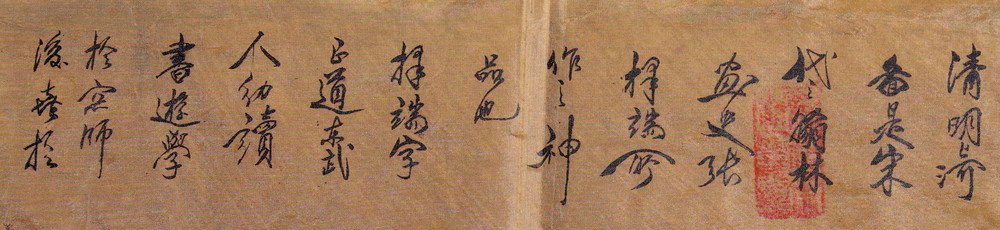 清明上河
圖是宋
代之翰林
畫史張
擇端所
作之神
品也
擇端字
正道東武
人幼讀
書遊學
於京師
後喜於